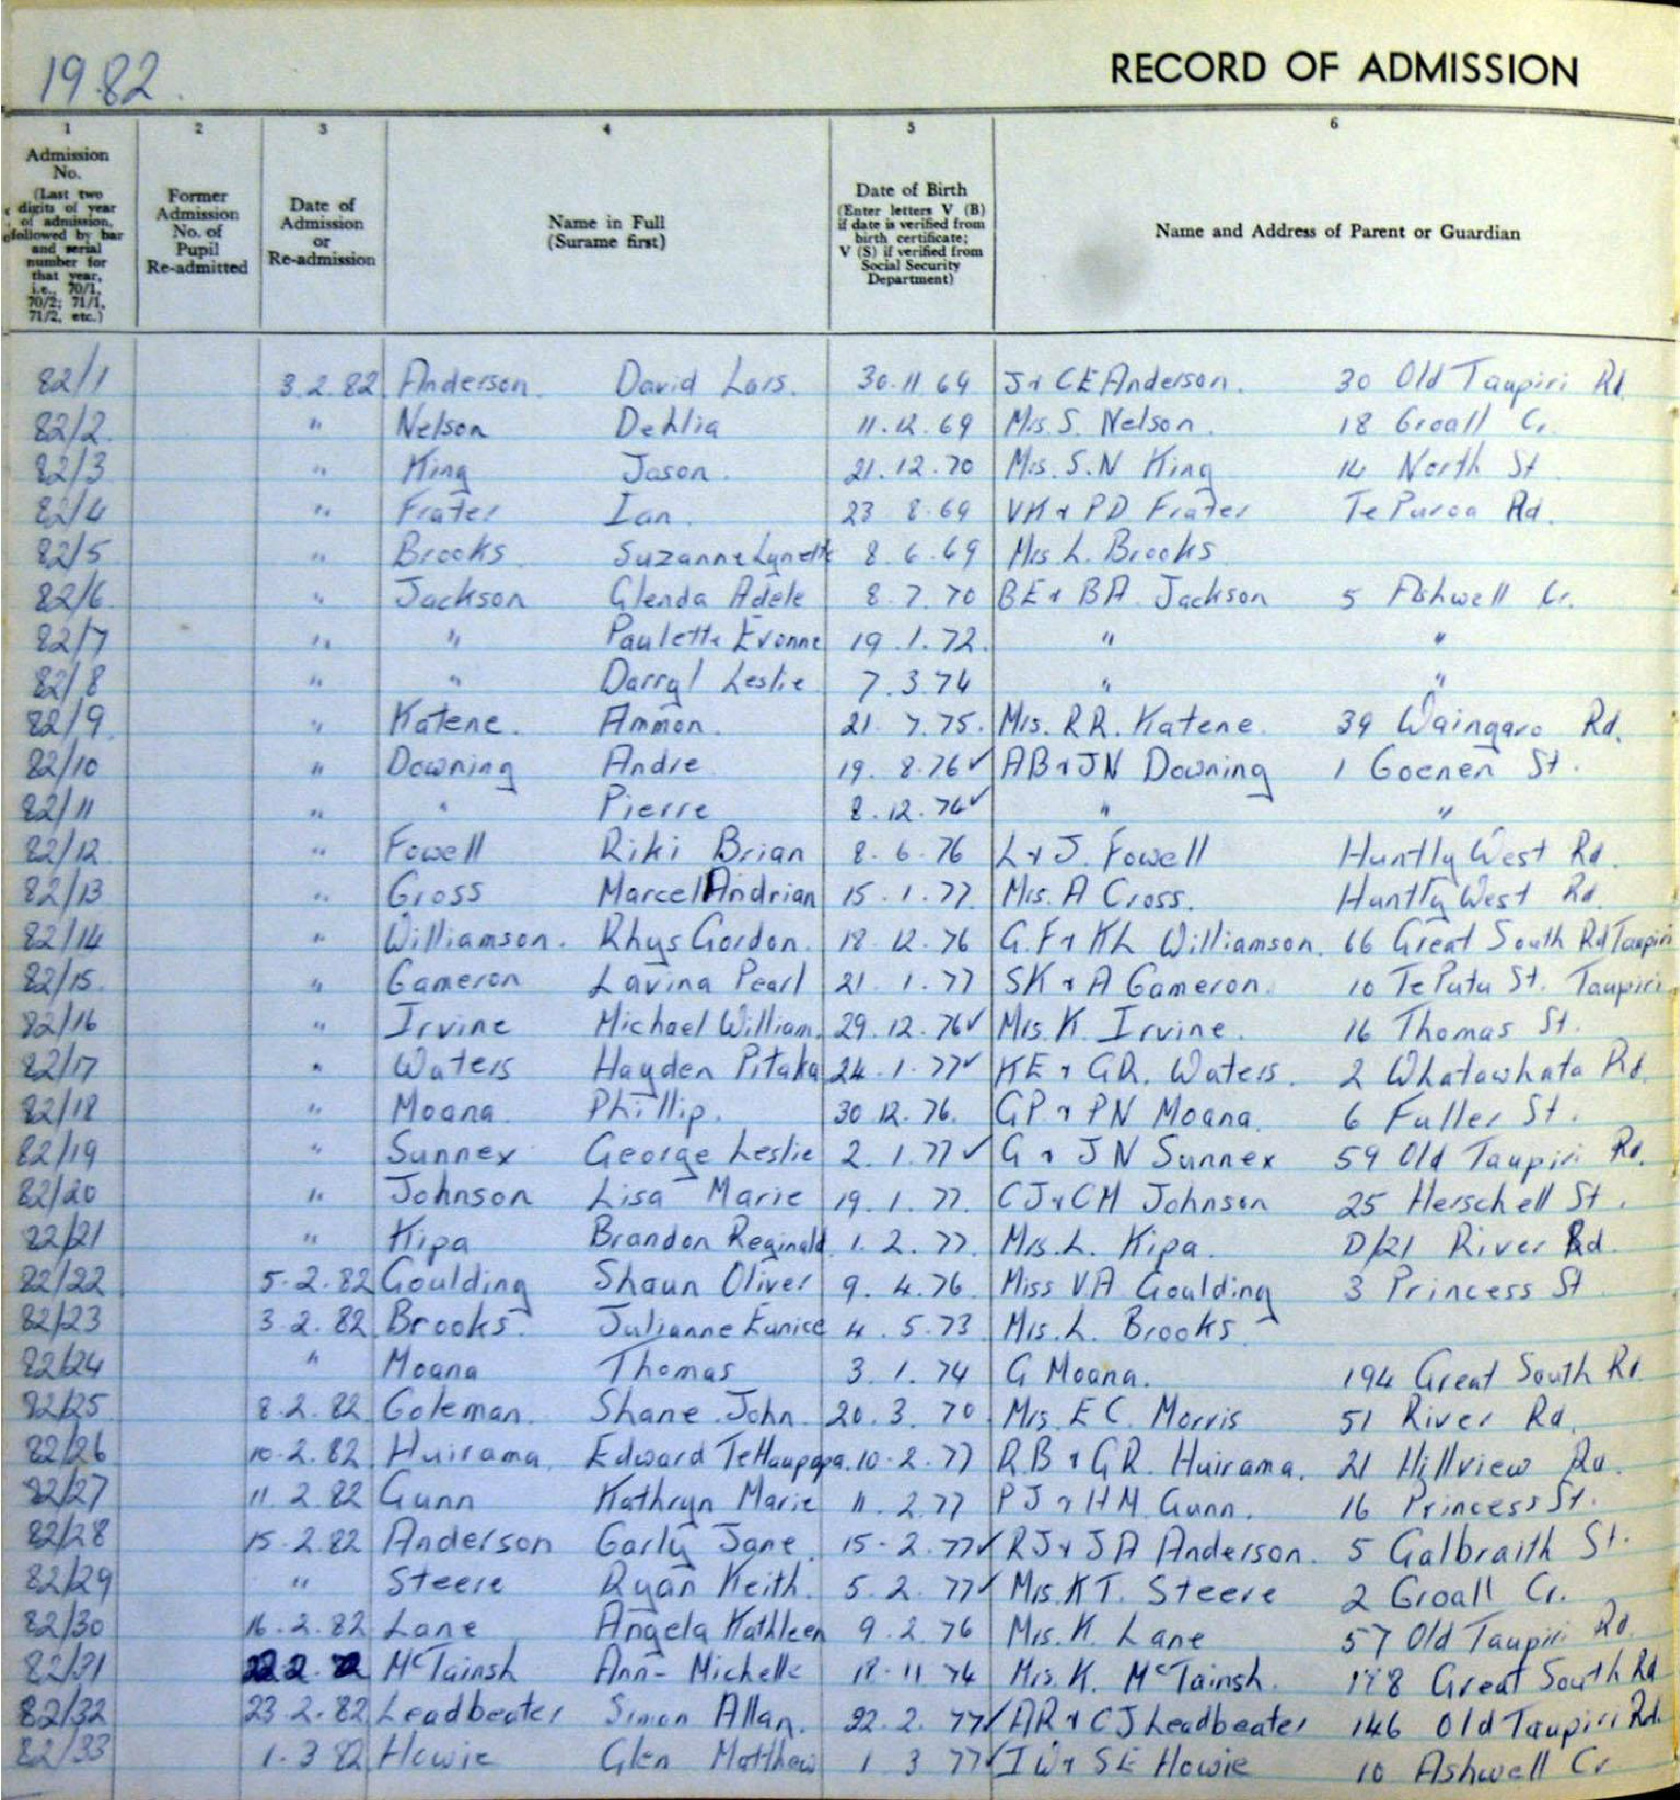 1982.
RECORD OF ADMISSION
1 2 3 4 5 6
Admission No. (Last two digits of year of admission, followed by bar and serial number for that year, i.e., 70/1, 70/2; 71/1, 71/2, etc.)
Former Admission No. of Pupil Re-admitted
Date of Admission or Re-admission
Name in Full (Surame first)
Date of Birth (Enter letters V (B) if date is verified from birth certificate; V (S) if verified from Social Security Department)
Name and Address of Parent or Guardian
82/1 3.2.82 Anderson. David Lars. 30.11 69 J & CE Anderson. 30 Old Taupiri Rd.
82/2. " Nelson Dehlia 11.12.69 Mrs. S. Nelson. 18 Croall Cr.
82/3 " King Jason. 21.12.70 Mrs. S.N King 14 North St
82/4 " Frater Ian. 23 8.69 VK & PD Frater Te Puroa Rd.
82/5 " Brooks Suzanne Lynette 8.6.69 Mrs L. Brooks
82/6. " Jackson Glenda Adele 8.7.70 BE & BA Jackson 5 Ashwell Cr.
82/7 " " Paulette Evonne 19.1.72. " "
82/8 " " Darryl Leslie 7.3.74 " "
82/9. " Katene. Ammon. 21.7.75. Mrs. RR. Katene. 39 Waingaro Rd.
82/10 " Downing Andre 19.8.76 ✓ AB & JN Downing 1 Goenen St.
82/11 " " Pierre 8.12.76 ✓ " "
82/12 " Fowell Riki Brian 8.6.76 L & J. Fowell Huntly West Rd.
82/13 " Cross Marcel Andrian 15.1.77. Mrs. A Cross. Huntly West Rd.
82/14 " Williamson. Rhys Gordon. 18.12.76 G.F & KL Williamson. 66 Great South Rd Taupiri
82/15. " Cameron Lavina Pearl 21.1.77 SK & A Cameron. 10 Te Putu St. Taupiri
82/16 " Irvine Michael William. 29.12.76 ✓ Mrs. K. Irvine. 16 Thomas St.
82/17 " Waters Hayden Pitaka 24.1.77 ✓ KE & GR. Waters. 2 Whatawhata Rd.
82/18 " Moana Phillip. 30 12.76. GP & PN Moana. 6 Fuller St.
82/19 " Sunnex George Leslie 2.1.77 ✓ G & JN Sunnex 59 Old Taupiri Rd.
82/20 " Johnson Lisa Marie 19.1.77. CJ & CM Johnson 25 Herschell St.
82/21 " Kipa Brandon Reginald. 1.2.77. Mrs. L. Kipa. D/21 River Rd.
82/22 5.2.82 Goulding Shaun Oliver 9.4.76. Miss VA Goulding 3 Princess St
82/23 3.2.82. Brooks. Julianne Eunice 4.5.73. Mrs. L. Brooks
82/24 " Moana Thomas 3.1.74 G Moana. 194 Great South Rd.
82/25 8.2.82. Coleman. Shane John. 20.3.70. Mrs. E C. Morris 51 River Rd.
82/26 10.2.82. Huirama. Edward 10.2.77 R.B & GR. Huirama. 21 Hillview Rd.
82/27 11.2.82 Gunn Kathryn Marie 11.2.77 PJ & HM Gunn. 16 Princess St.
82/28 15.2.82 Anderson Carly Jane. 15.2.77 ✓ RJ & JA Anderson. 5 Galbraith St.
82/29 " Steere Ryan Keith. 5.2.77 ✓ Mrs. KT. Steere 2 Croall Cr.
82/30 16.2.82 Lane Angela Kathleen 9.2.76 Mrs. K. Lane 57 Old Taupiri Rd.
82/31 McTainsh Ann-Michelle 18.11 74 Mrs. K. McTainsh. Great South Rd
82/32 23.2.82 Leadbeater Simon Allan. 22.2.77 ✓ AR & CJ Leadbeater 146 Old Taupiri Rd.
82/33 1.3 82 Howie Glen Matthew 1 3 77 ✓ IW & SE Howie 10 Ashwell Cr